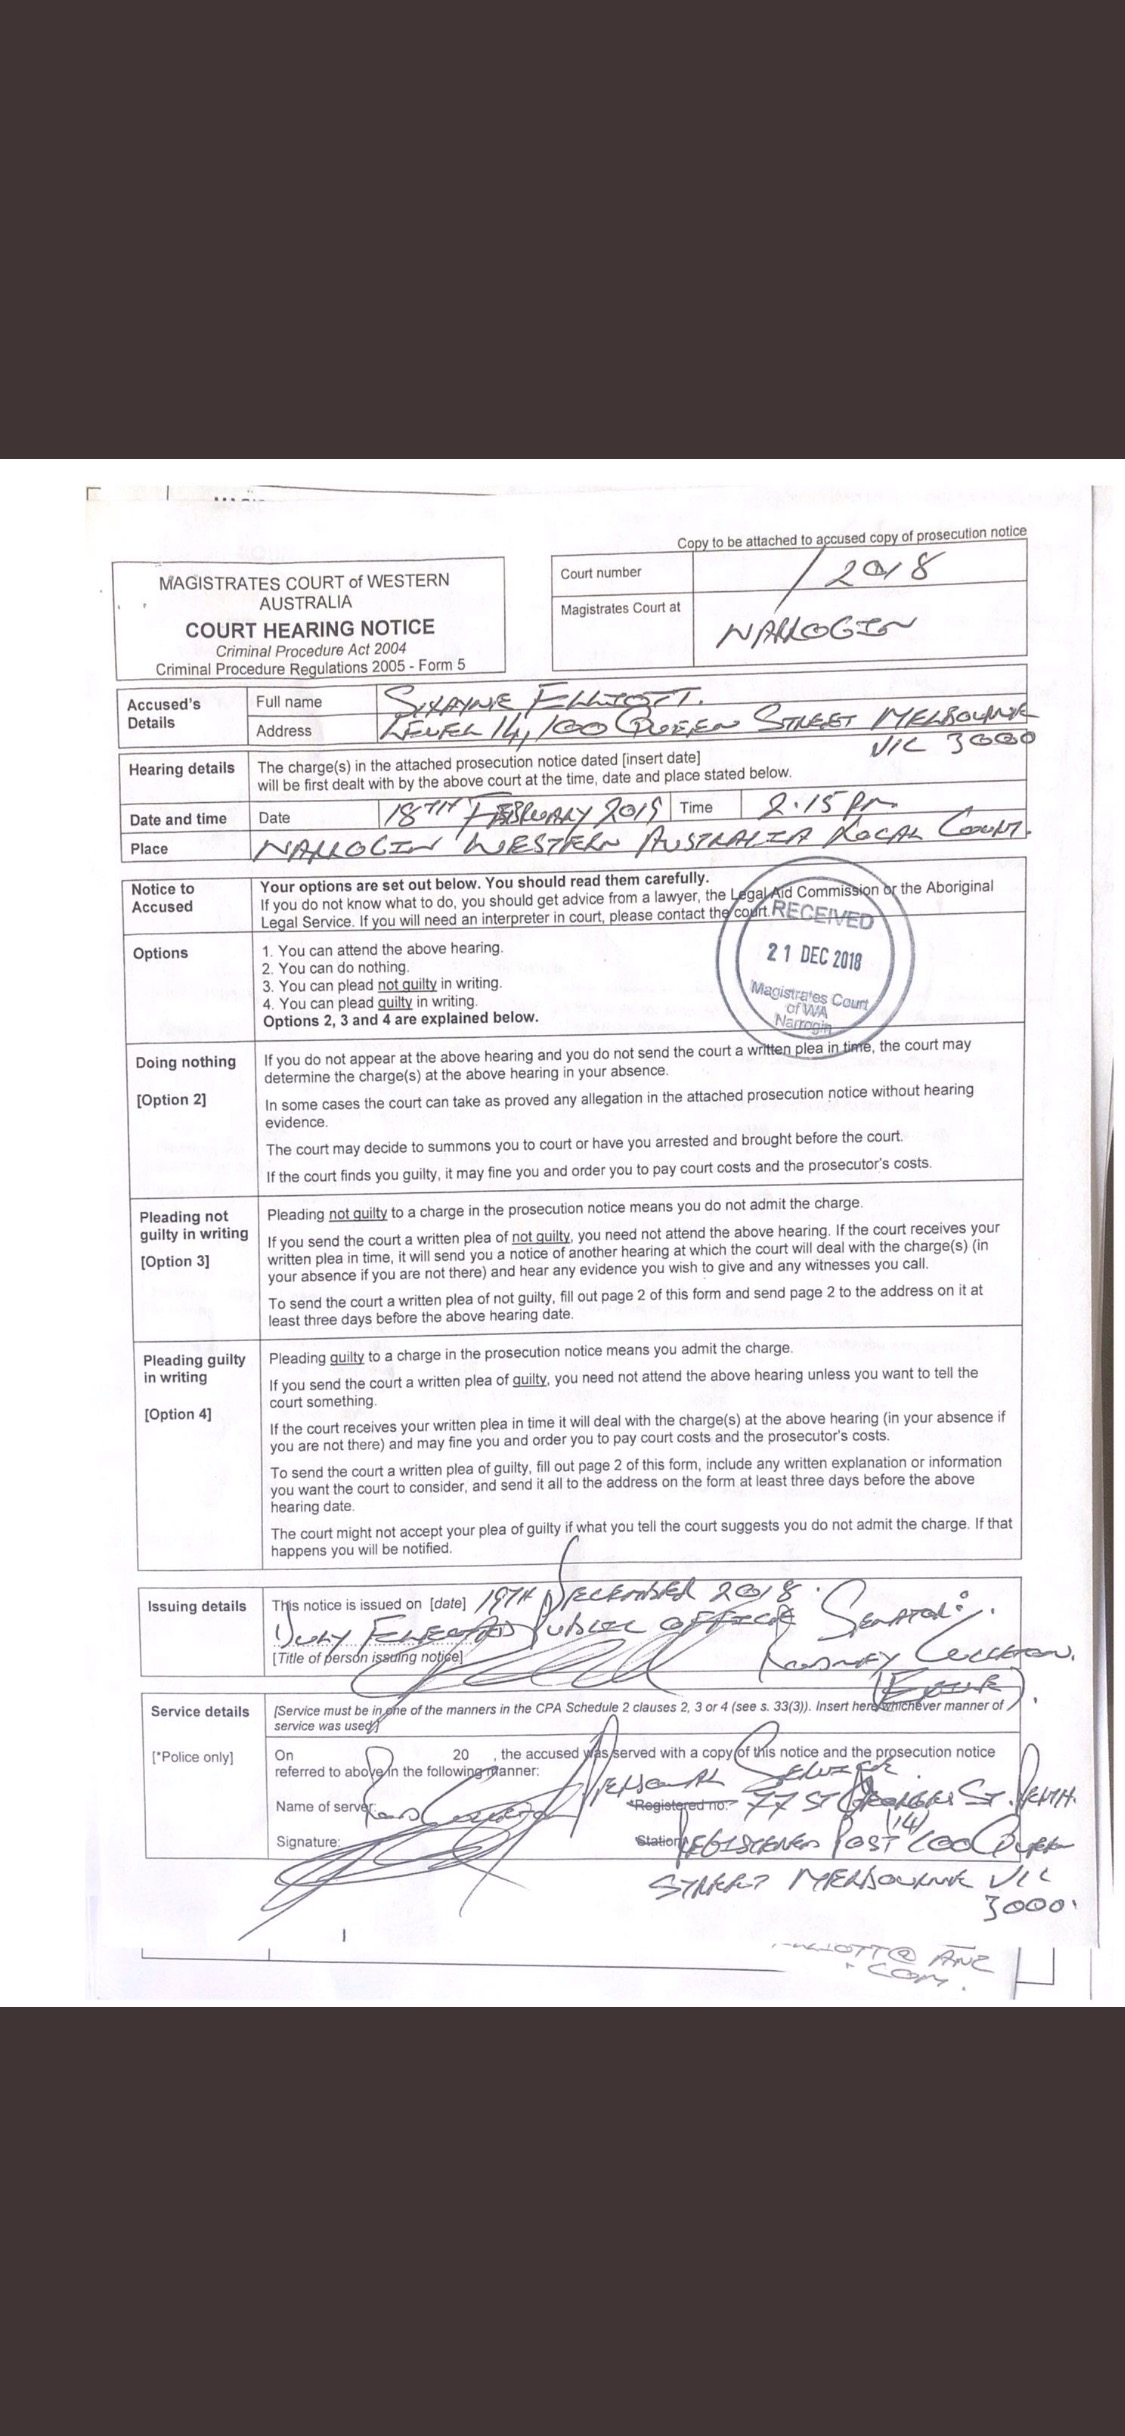 Copy to be attached to accused copy of prosecution notice
MAGISTRATES COURT of WESTERN
AUSTRALIA
COURT HEARING NOTICE
Criminal Procedure Act 2004
Criminal Procedure Regulations 2005 - Form 5
Court number / 2018
Magistrates Court at NARROGIN
Accused's Details
Full name SHAYNE ELLIOTT.
Address LEVEL 14, 100 QUEEN STREET MELBOURNE
VIC 3000
Hearing details
The charge(s) in the attached prosecution notice dated [insert date]
will be first dealt with by the above court at the time, date and place stated below.
Date and time Date 18TH FEBRUARY 2019 Time 2.15 Pm
Place NARROGIN WESTERN AUSTRALIA LOCAL COURT.
Notice to
Accused
Your options are set out below. You should read them carefully.
If you do not know what to do, you should get advice from a lawyer, the Legal Aid Commission or the Aboriginal
Legal Service. If you will need an interpreter in court, please contact the court.
RECEIVED
21 DEC 2018
Magistrates Court
of WA
Narrogin
Options
1. You can attend the above hearing.
2. You can do nothing.
3. You can plead not guilty in writing.
4. You can plead guilty in writing.
Options 2, 3 and 4 are explained below.
Doing nothing
[Option 2]
If you do not appear at the above hearing and you do not send the court a written plea in time, the court may
determine the charge(s) at the above hearing in your absence.
In some cases the court can take as proved any allegation in the attached prosecution notice without hearing
evidence.
The court may decide to summons you to court or have you arrested and brought before the court.
If the court finds you guilty, it may fine you and order you to pay court costs and the prosecutor's costs.
Pleading not
guilty in writing
[Option 3]
Pleading not guilty to a charge in the prosecution notice means you do not admit the charge.
If you send the court a written plea of not guilty, you need not attend the above hearing. If the court receives your
written plea in time, it will send you a notice of another hearing at which the court will deal with the charge(s) (in
your absence if you are not there) and hear any evidence you wish to give and any witnesses you call.
To send the court a written plea of not guilty, fill out page 2 of this form and send page 2 to the address on it at
least three days before the above hearing date.
Pleading guilty
in writing
[Option 4]
Pleading guilty to a charge in the prosecution notice means you admit the charge.
If you send the court a written plea of guilty, you need not attend the above hearing unless you want to tell the
court something.
If the court receives your written plea in time it will deal with the charge(s) at the above hearing (in your absence if
you are not there) and may fine you and order you to pay court costs and the prosecutor's costs.
To send the court a written plea of guilty, fill out page 2 of this form, include any written explanation or information
you want the court to consider, and send it all to the address on the form at least three days before the above
hearing date.
The court might not accept your plea of guilty if what you tell the court suggests you do not admit the charge. If that
happens you will be notified.
Issuing details
This notice is issued on [date] 19TH DECEMBER 2018.
DULY ELECTED PUBLIC OFFICE SENATOR:
[Title of person issuing notice] RODNEY CULLETON.
Service details
[Service must be in one of the manners in the CPA Schedule 2 clauses 2, 3 or 4 (see s. 33(3)). Insert here whichever manner of
service was used]
[*Police only]
On 20 , the accused was served with a copy of this notice and the prosecution notice
referred to above in the following manner: PERSONAL SERVICE
Name of server: *Registered no: 77 ST GEORGES ST. PERTH.
Signature: Station REGISTERED POST 14/ 100 QUEEN
STREET MELBOURNE VIC
3000.
@ ANZ
. COM.